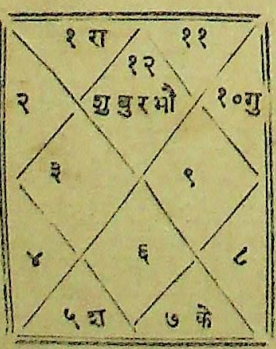 १ रा ११
१२
२ शु बु र भौ १० गु
३ ९
४ ६ ८
५ श ७ के